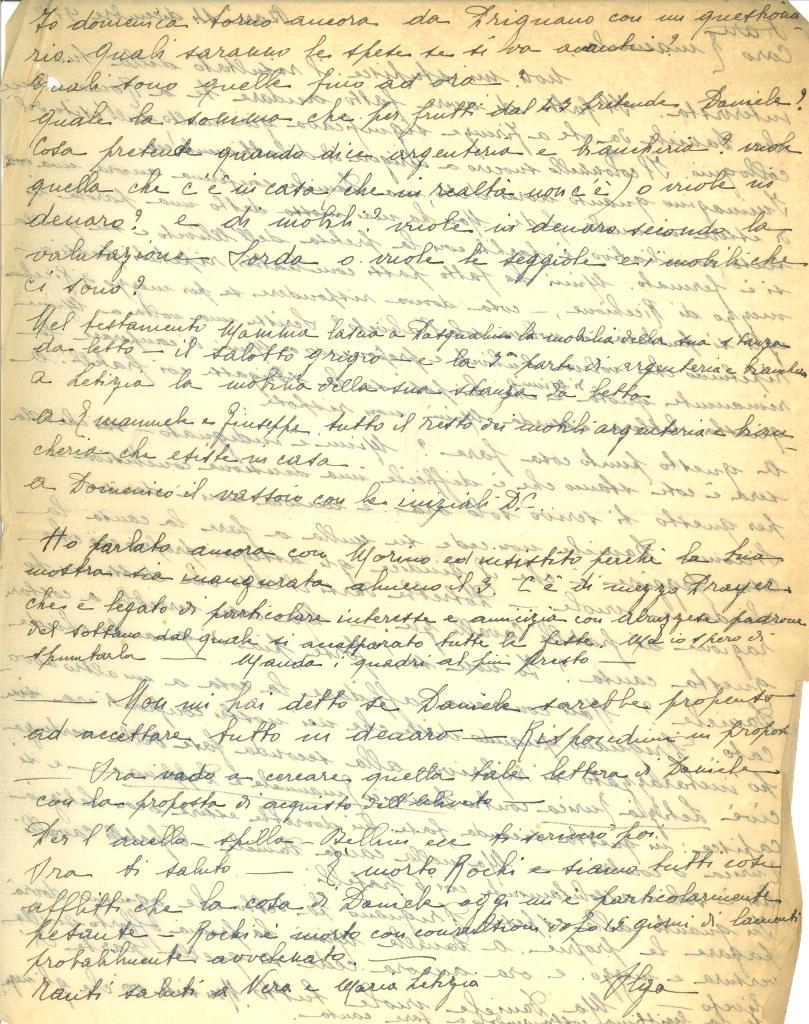 Io domenica torno ancora da Prignano con un questiona-
rio. Quali saranno le spese se si va avanti?
Quali sono quelle fino ad ora?
Quale la somma che per frutti dal 43 pretende Daniele?
Cosa pretende quando dice argenteria e biancheria? vuole
quella che c'è in casa (che in realtà non c'è) o vuole in
denaro? e di mobili? vuole in denaro secondo la
valutazione Sorda o vuole le seggiole e i mobili che
ci sono?
Nel testamento Mamma lascia a Pasqualino la mobilia della sua stanza
da letto - il salotto grigio - e la 3ª parte di argenteria e biancheria
a Letizia la mobilia della sua stanza da letto
a Emanuele e Giuseppe tutto il resto dei mobili argenteria e bian-
cheria che esiste in casa
a Domenico il vassoio con le iniziali D.C.
Ho parlato ancora con Morino ed insistito perché la tua
mostra sia inaugurata almeno il 3. C'è di mezzo Prayer
che è legato di particolare interesse e amicizia con abruzzese padrone
del sottano dal quale si accaparrato tutte le feste. Ma io spero di
spuntarla — Manda i quadri al più presto —
— Non mi hai detto se Daniele sarebbe propenso
ad accettare tutto in denaro — Rispondimi in proposi
— Ora vado a cercare quella tale lettera di Daniele
con la proposta di acquisto dell'uliveto
Per l'anello - spilla - Bellini ecc ti scriverò poi.
Ora ti saluto — È morto Rochi e siamo tutti così
afflitti che la cosa di Daniele oggi mi è particolarmente
pesante - Rochi è morto con convulsioni dopo 15 giorni di lamenti
probabilmente avvelenato. —
Tanti saluti a Vera e Maria Letizia Olga